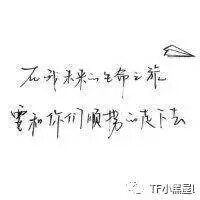 在我未来的生命之旅
要和你们顺携的走下去
TF小黑屋